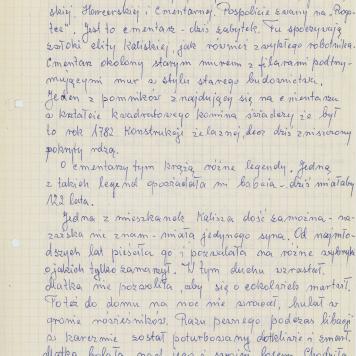 skiej Harcerskiej i Cmentarnej. Pospolicie zwany na "Rogatce". Jest to cmentarz - dziś zabytek. Tu spoczywają
zwłoki elity kaliskiej, jak również zwykłego robotnika.
Cmentarz okolony starym murem z filarami podtrzymującymi mur w stylu starego budownictwa.
Jeden z pomników znajdujący się na cmentarzu
w kształcie kwadratowego komina świadczy że był
to rok 1782. Konstrukcji żelaznej, dziś zniszczony
pokryty rdzą.
O cmentarzu tym krążą różne legendy. Jedną
z takich legend opowiadała mi babcia - dziś miałaby
122 lata.
Jedna z mieszkanek Kalisza dość zamożna - nazwiska nie znam - miała jedynego syna. Od najmłodszych lat pieściła go i pozwalała na różne wybryki
o jakich tylko zamarzył. W tym duchu wzrastał.
Matka nie pozwoliła, aby się o cokolwiek martwił.
Też do domu na noc nie wracał, hulał w
gronie rówieśników. Razu pewnego podczas libacji
w karczmie został poturbowany dotkliwie i zmarł.